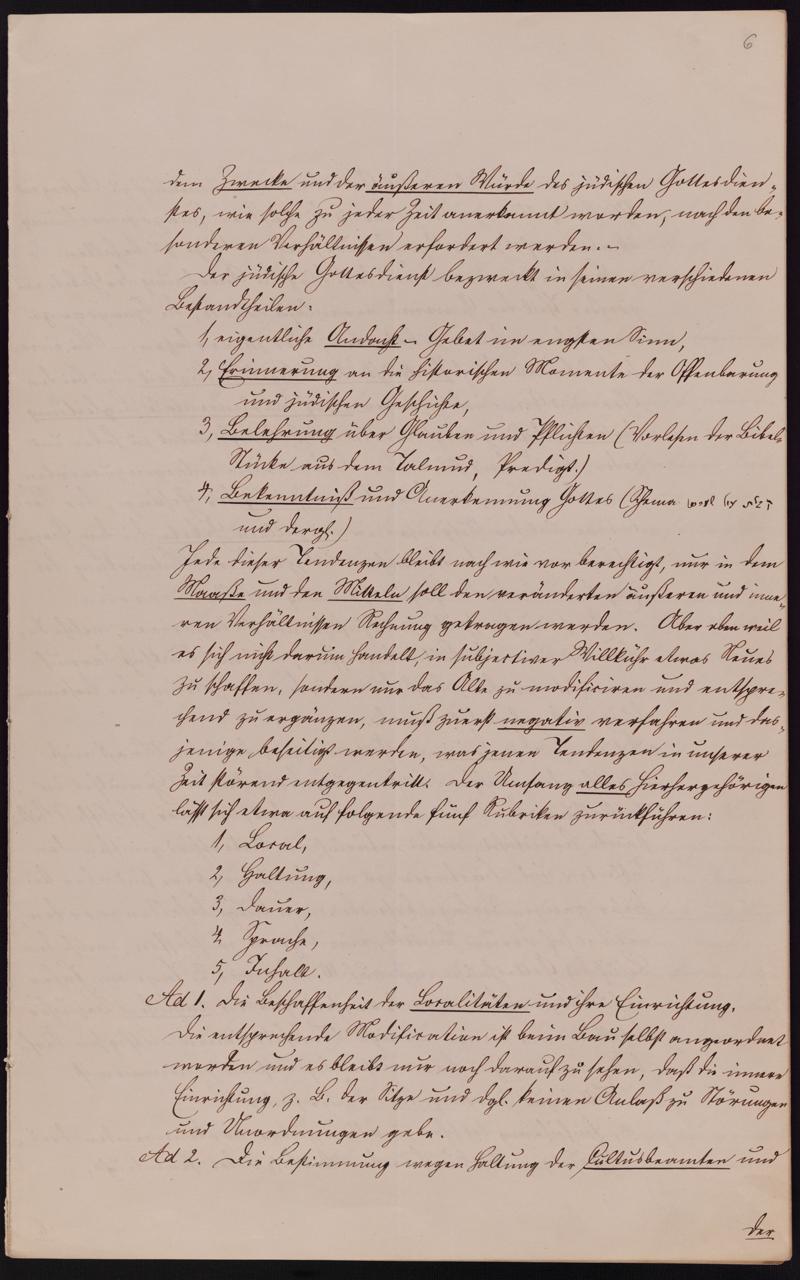 6
dem Zwecke und der äußeren Würde des jüdischen Gottesdien-
stes, wie solche zu jeder Zeit anerkannt worden, nach den be-
sonderen Verhältnissen erfordert werden. –
Der jüdische Gottesdienst bezweckt in seinen verschiedenen
Bestandtheilen:
1, eigentliche Andacht – Gebet im engsten Sinn,
2, Erinnerung an die historischen Momente der Offenbarung
und jüdischen Geschichte,
3, Belehrung über Glauben und Pflichten (Vorlesen der Bibel-
Stücke aus dem Talmud, Predigt.)
4, Bekenntniß und Anerkennung Gottes (Schema
und dergl.)
Jede dieser Tendenzen bleibt nach wie vor berechtigt, nur in dem
Maaße und den Mitteln soll den veränderten äußeren und inne-
ren Verhältnissen Rechnung getragen werden. Aber eben weil
es sich nicht darum handelt, in subjectiver Willkühr etwas Neues
zu schaffen, sondern nur das Alte zu modificiren und entspre-
chend zu ergänzen, muß zuerst negativ verfahren und das-
jenige beseitigt werden, was jenen Tendenzen in unserer
Zeit störend entgegentritt. Der Umfang alles Hierhergehörigen
läßt sich etwa auf folgende fünf Rubriken zurückführen:
1, Local,
2, Haltung,
3, Dauer,
4, Sprache,
5, Inhalt.
Ad 1. Die Beschaffenheit der Localitäten und ihre Einrichtung.
Die entsprechende Modification ist beim Bau selbst angeordnet
worden und es bleibt nur noch darauf zu sehen, daß die innere
Einrichtung, z. B. der Sitze und dgl. keinen Anlaß zu Störungen
und Unordnungen gebe.
Ad 2. Die Bestimmung wegen Haltung der Cultusbeamten und
der